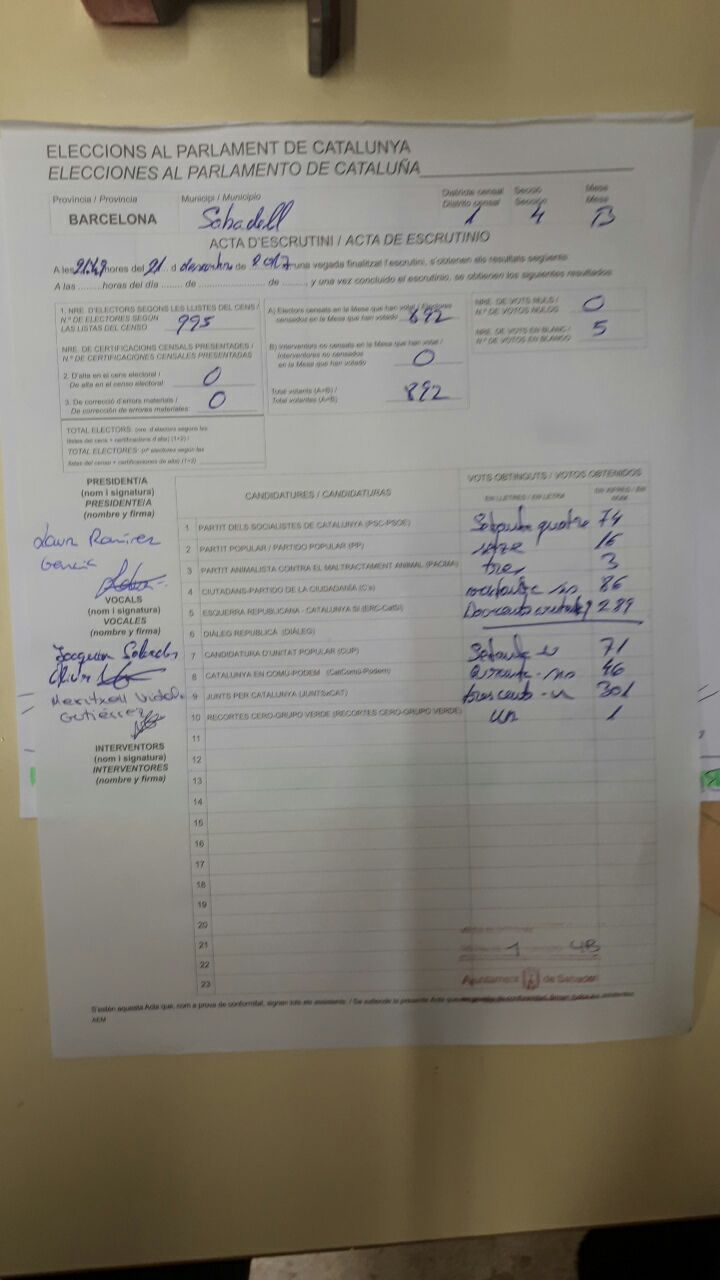 ELECCIONS AL PARLAMENT DE CATALUNYA
ELECCIONES AL PARLAMENTO DE CATALUÑA
Província / Provincia
BARCELONA
Municipi / Municipio
Sabadell
Districte censal
Distrito censal
1
Secció
Sección
4
Mesa
Mesa
B
ACTA D'ESCRUTINI / ACTA DE ESCRUTINIO
A les 21:49 hores del 21 d desembre de 2017 una vegada finalitzat l'escrutini, s'obtenen els resultats següents:
A las ........horas del día ....... de ...................... de ........, y una vez concluido el escrutinio, se obtienen los siguientes resultados:
1. NRE. D'ELECTORS SEGONS LES LLISTES DEL CENS /
N.º DE ELECTORES SEGÚN
LAS LISTAS DEL CENSO 995
NRE. DE CERTIFICACIONS CENSALS PRESENTADES /
N.º DE CERTIFICACIONES CENSALES PRESENTADAS
2. D'alta en el cens electoral /
De alta en el censo electoral: 0
3. De correcció d'errors materials /
De corrección de errores materiales: 0
TOTAL ELECTORS: (nre. d'electors segons les
llistes del cens + certificacions d'alta) (1+2) /
TOTAL ELECTORES: (nº electores según las
listas del censo + certificaciones de alta) (1+2)
A) Electors censats en la Mesa que han votat / Electores
censados en la Mesa que han votado 892
B) Interventors no censats en la Mesa que han votat /
Interventores no censados
en la Mesa que han votado 0
Total votants (A+B) /
Total votantes (A+B) 892
NRE. DE VOTS NULS /
N.º DE VOTOS NULOS 0
NRE. DE VOTS EN BLANC /
N.º DE VOTOS EN BLANCO 5
PRESIDENT/A
(nom i signatura)
PRESIDENTE/A
(nombre y firma)
Laura Ramírez
García
VOCALS
(nom i signatura)
VOCALES
(nombre y firma)
Joaquim
Meritxell Vidal
Gutiérrez
INTERVENTORS
(nom i signatura)
INTERVENTORES
(nombre y firma)
CANDIDATURES / CANDIDATURAS
VOTS OBTINGUTS / VOTOS OBTENIDOS
EN LLETRES / EN LETRA
EN XIFRES / EN NUM.
1 PARTIT DELS SOCIALISTES DE CATALUNYA (PSC-PSOE) Setanta quatre 74
2 PARTIT POPULAR / PARTIDO POPULAR (PP) setze 16
3 PARTIT ANIMALISTA CONTRA EL MALTRACTAMENT ANIMAL (PACMA) tres 3
4 CIUTADANS-PARTIDO DE LA CIUDADANÍA (C's) 86
5 ESQUERRA REPUBLICANA - CATALUNYA SÍ (ERC-CatSí) 289
6 DIÀLEG REPUBLICÀ (DIÀLEG)
7 CANDIDATURA D'UNITAT POPULAR (CUP) Setanta u 71
8 CATALUNYA EN COMÚ-PODEM (CatComú-Podem) 46
9 JUNTS PER CATALUNYA (JUNTSxCAT) 301
10 RECORTES CERO-GRUPO VERDE (RECORTES CERO-GRUPO VERDE) un 1
11
12
13
14
15
16
17
18
19
20
21
22
23
1 4B
Ajuntament de Sabadell
S'estén aquesta Acta que, com a prova de conformitat, signen tots els assistents. / Se extiende la presente Acta que en prueba de conformidad, firman todos los asistentes.
AEM